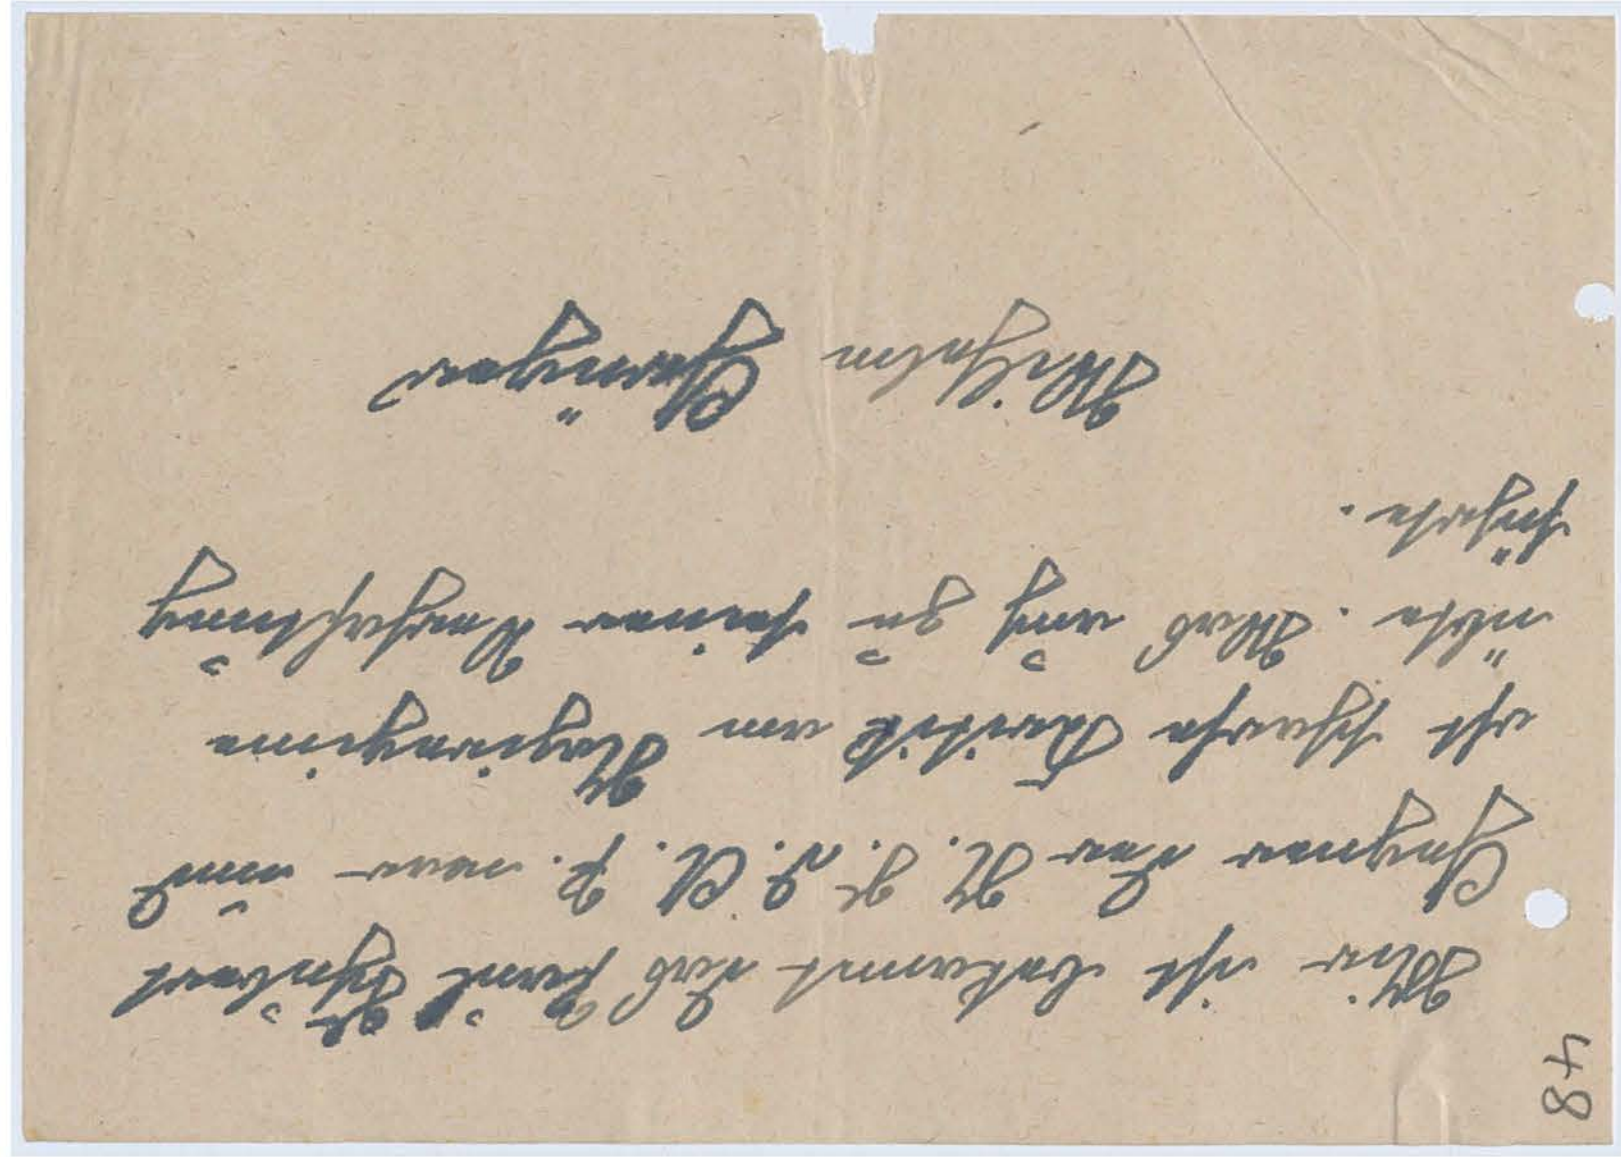 48
Mir ist bekannt das Paul
Gegner der N. S. D. A. P. war und
oft scharfe Kritik am Nazieregime
übte. Was auch zu seiner Verhaftung
führte.
Wilhelm